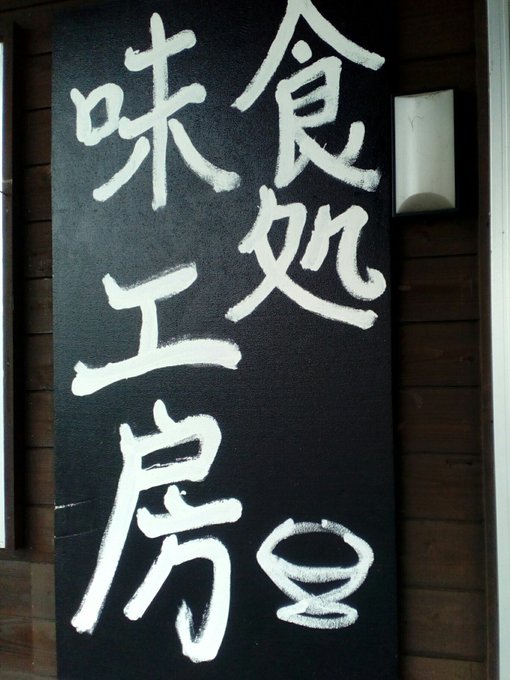 食処
味工房